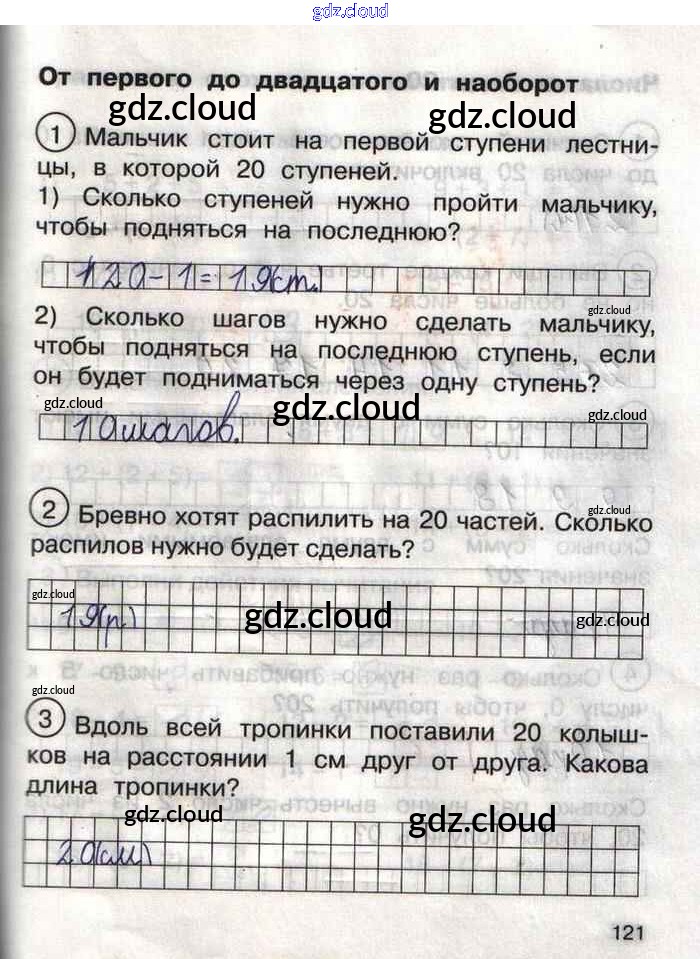 gdz.cloud
От первого до двадцатого и наоборот
gdz.cloud gdz.cloud
1 Мальчик стоит на первой ступени лестни-
цы, в которой 20 ступеней.
1) Сколько ступеней нужно пройти мальчику,
чтобы подняться на последнюю?
20-1=19(ст.)
gdz.cloud
2) Сколько шагов нужно сделать мальчику,
чтобы подняться на последнюю ступень, если
он будет подниматься через одну ступень?
gdz.cloud gdz.cloud gdz.cloud
10шагов.
gdz.cloud
2 Бревно хотят распилить на 20 частей. Сколько
распилов нужно будет сделать?
gdz.cloud gdz.cloud gdz.cloud
19(р.)
gdz.cloud
3 Вдоль всей тропинки поставили 20 колыш-
ков на расстоянии 1 см друг от друга. Какова
длина тропинки?
gdz.cloud gdz.cloud
20(см)
121